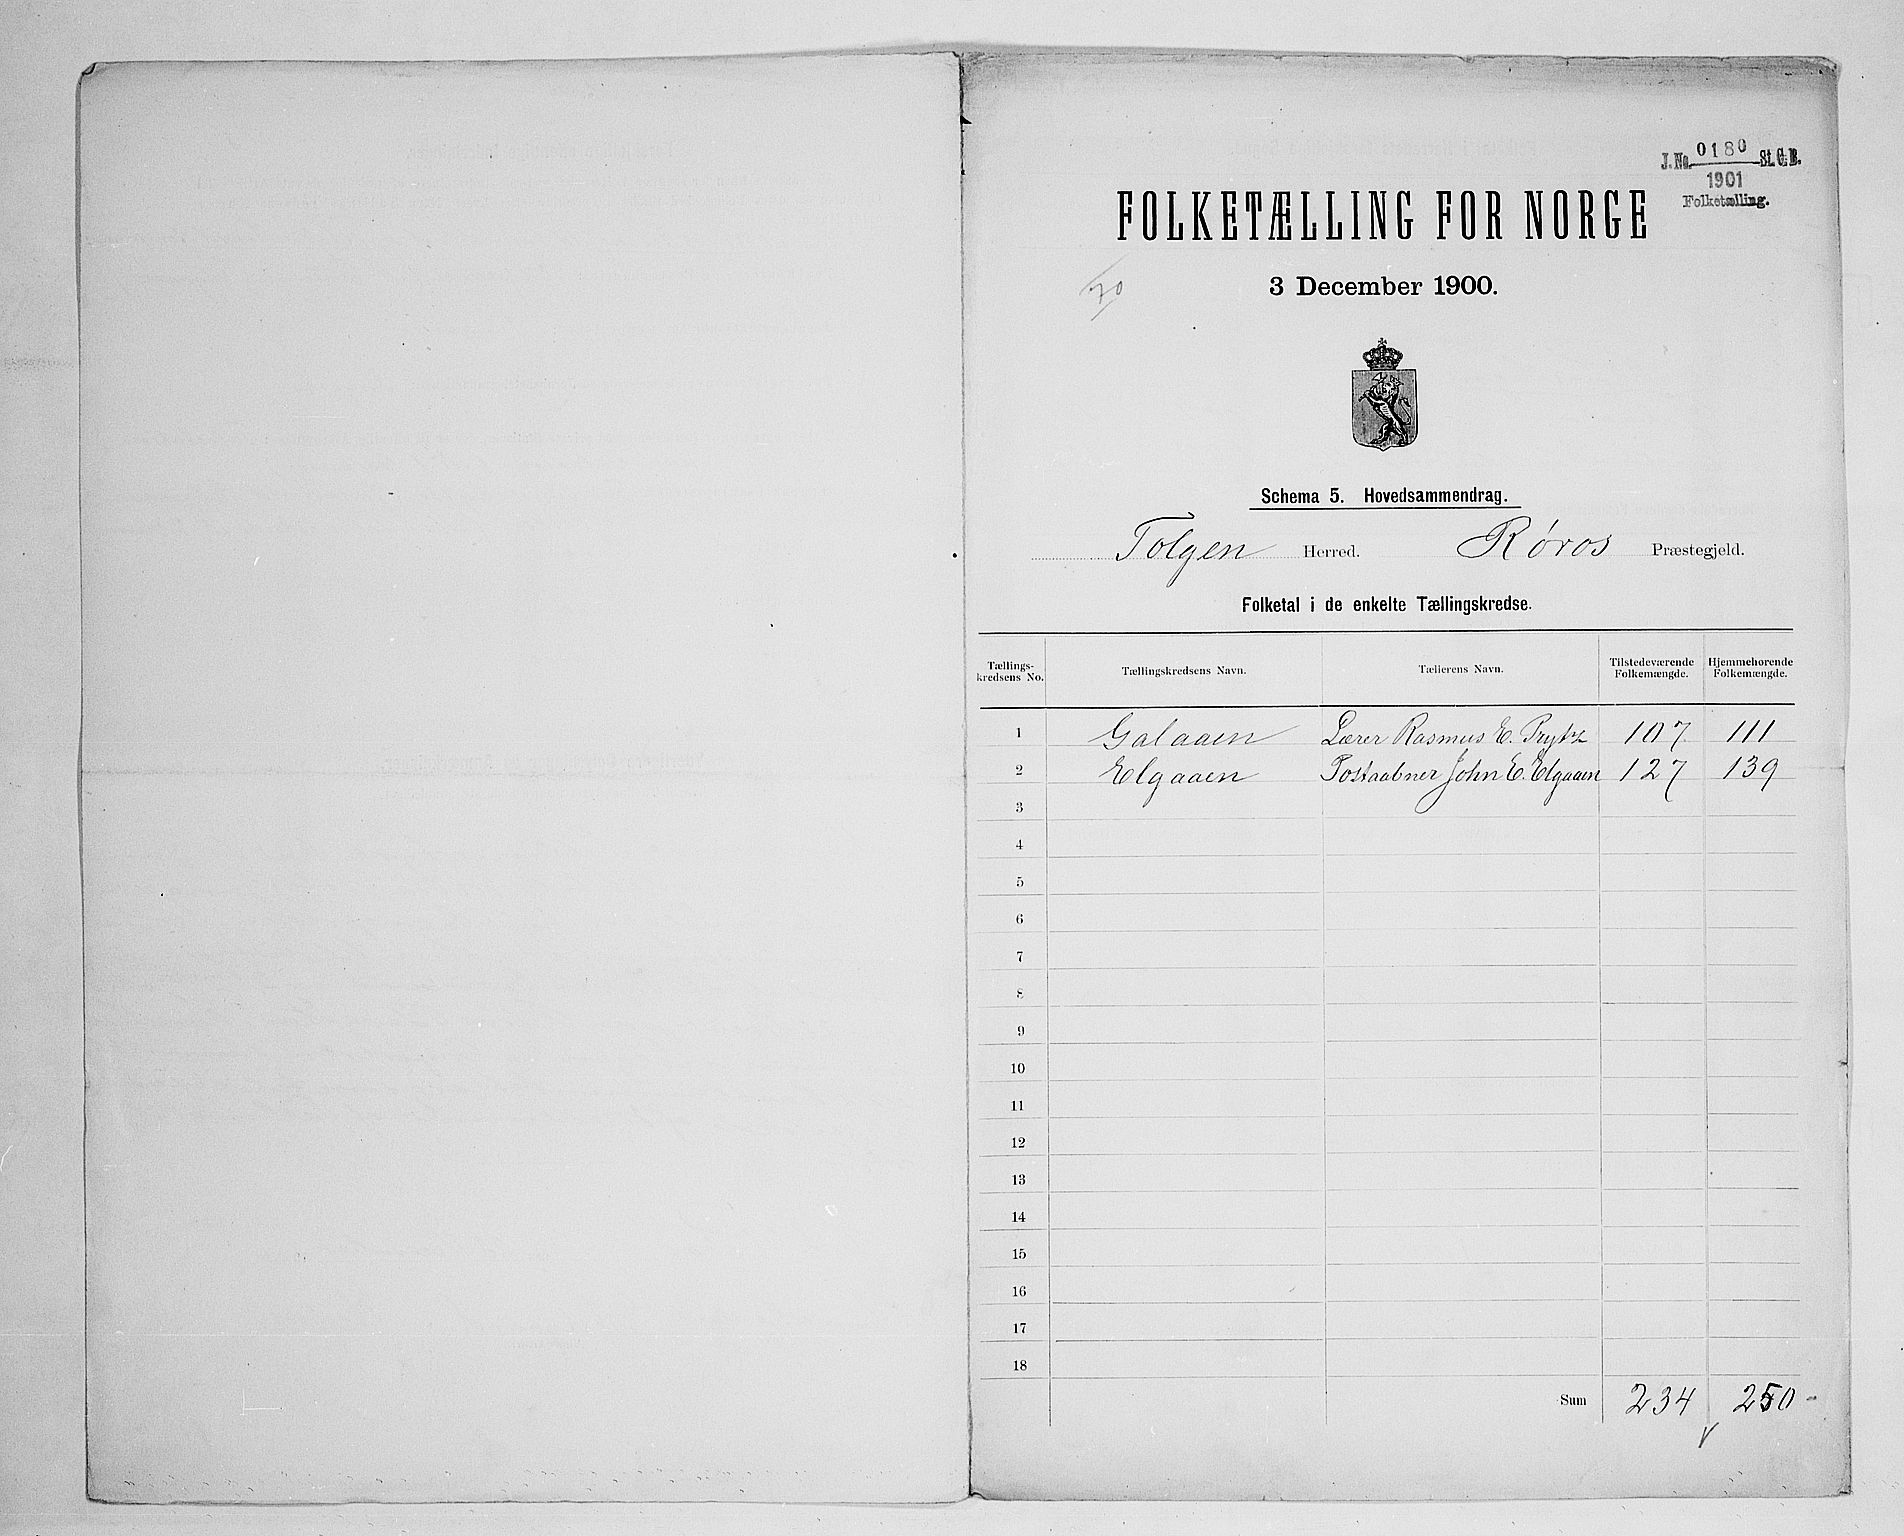 J.No. 0180 St.C.B.
1901
Folketælling.
FOLKETÆLLING FOR NORGE
70
3 December 1900.
Schema 5. Hovedsammendrag.
Tolgen Herred. Røros Præstegjeld.
Folketal i de enkelte Tællingskredse.
Tællings-kredsens No. Tællingskredsens Navn. Tællerens Navn. Tilstedeværende Folkemængde. Hjemmehørende Folkemængde.
1 Galaaen Lærer Rasmus E. Prytz 107 111
2 Elgaaen Postaabner John E. Elgaaen 127 139
3
4
5
6
7
8
9
10
11
12
13
14
15
16
17
18
Sum 234 250